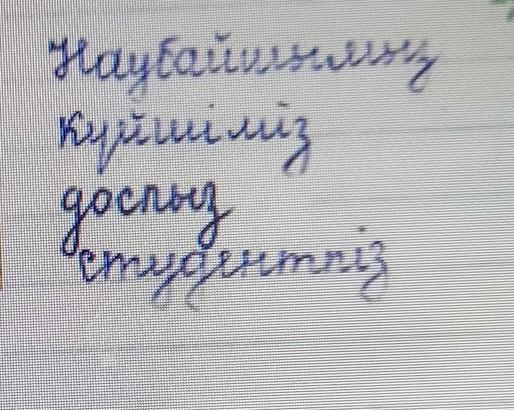 Наубайшымыз
күйшіміз
доспыз
студентпіз